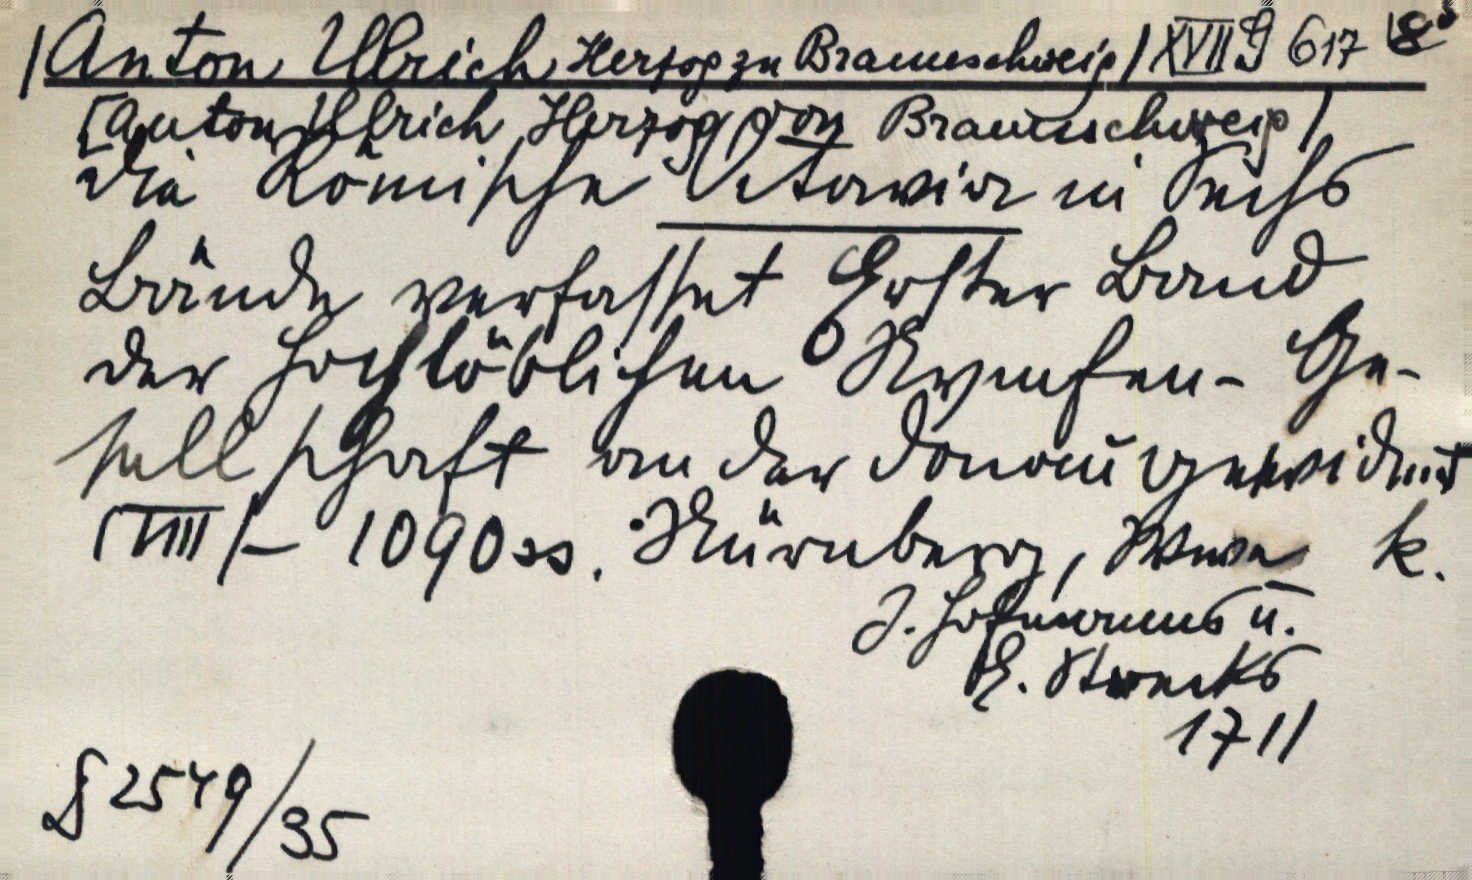 /Anton Ulrich Herzog zu Braunschweig/ XVII J 617 8°
[Anton Ulrich Herzog von Braunschweig/
Die Römische Octavia in Sechs
Bände verfasset Erster Band
der hochlöblichen Nymfen-Ge-
sellschaft an der Donau gewidmet
(VIII/– 1090 ss. Nürnberg, k.
J. Hofmanns u.
E. Strecks
1711
§ 2549/35